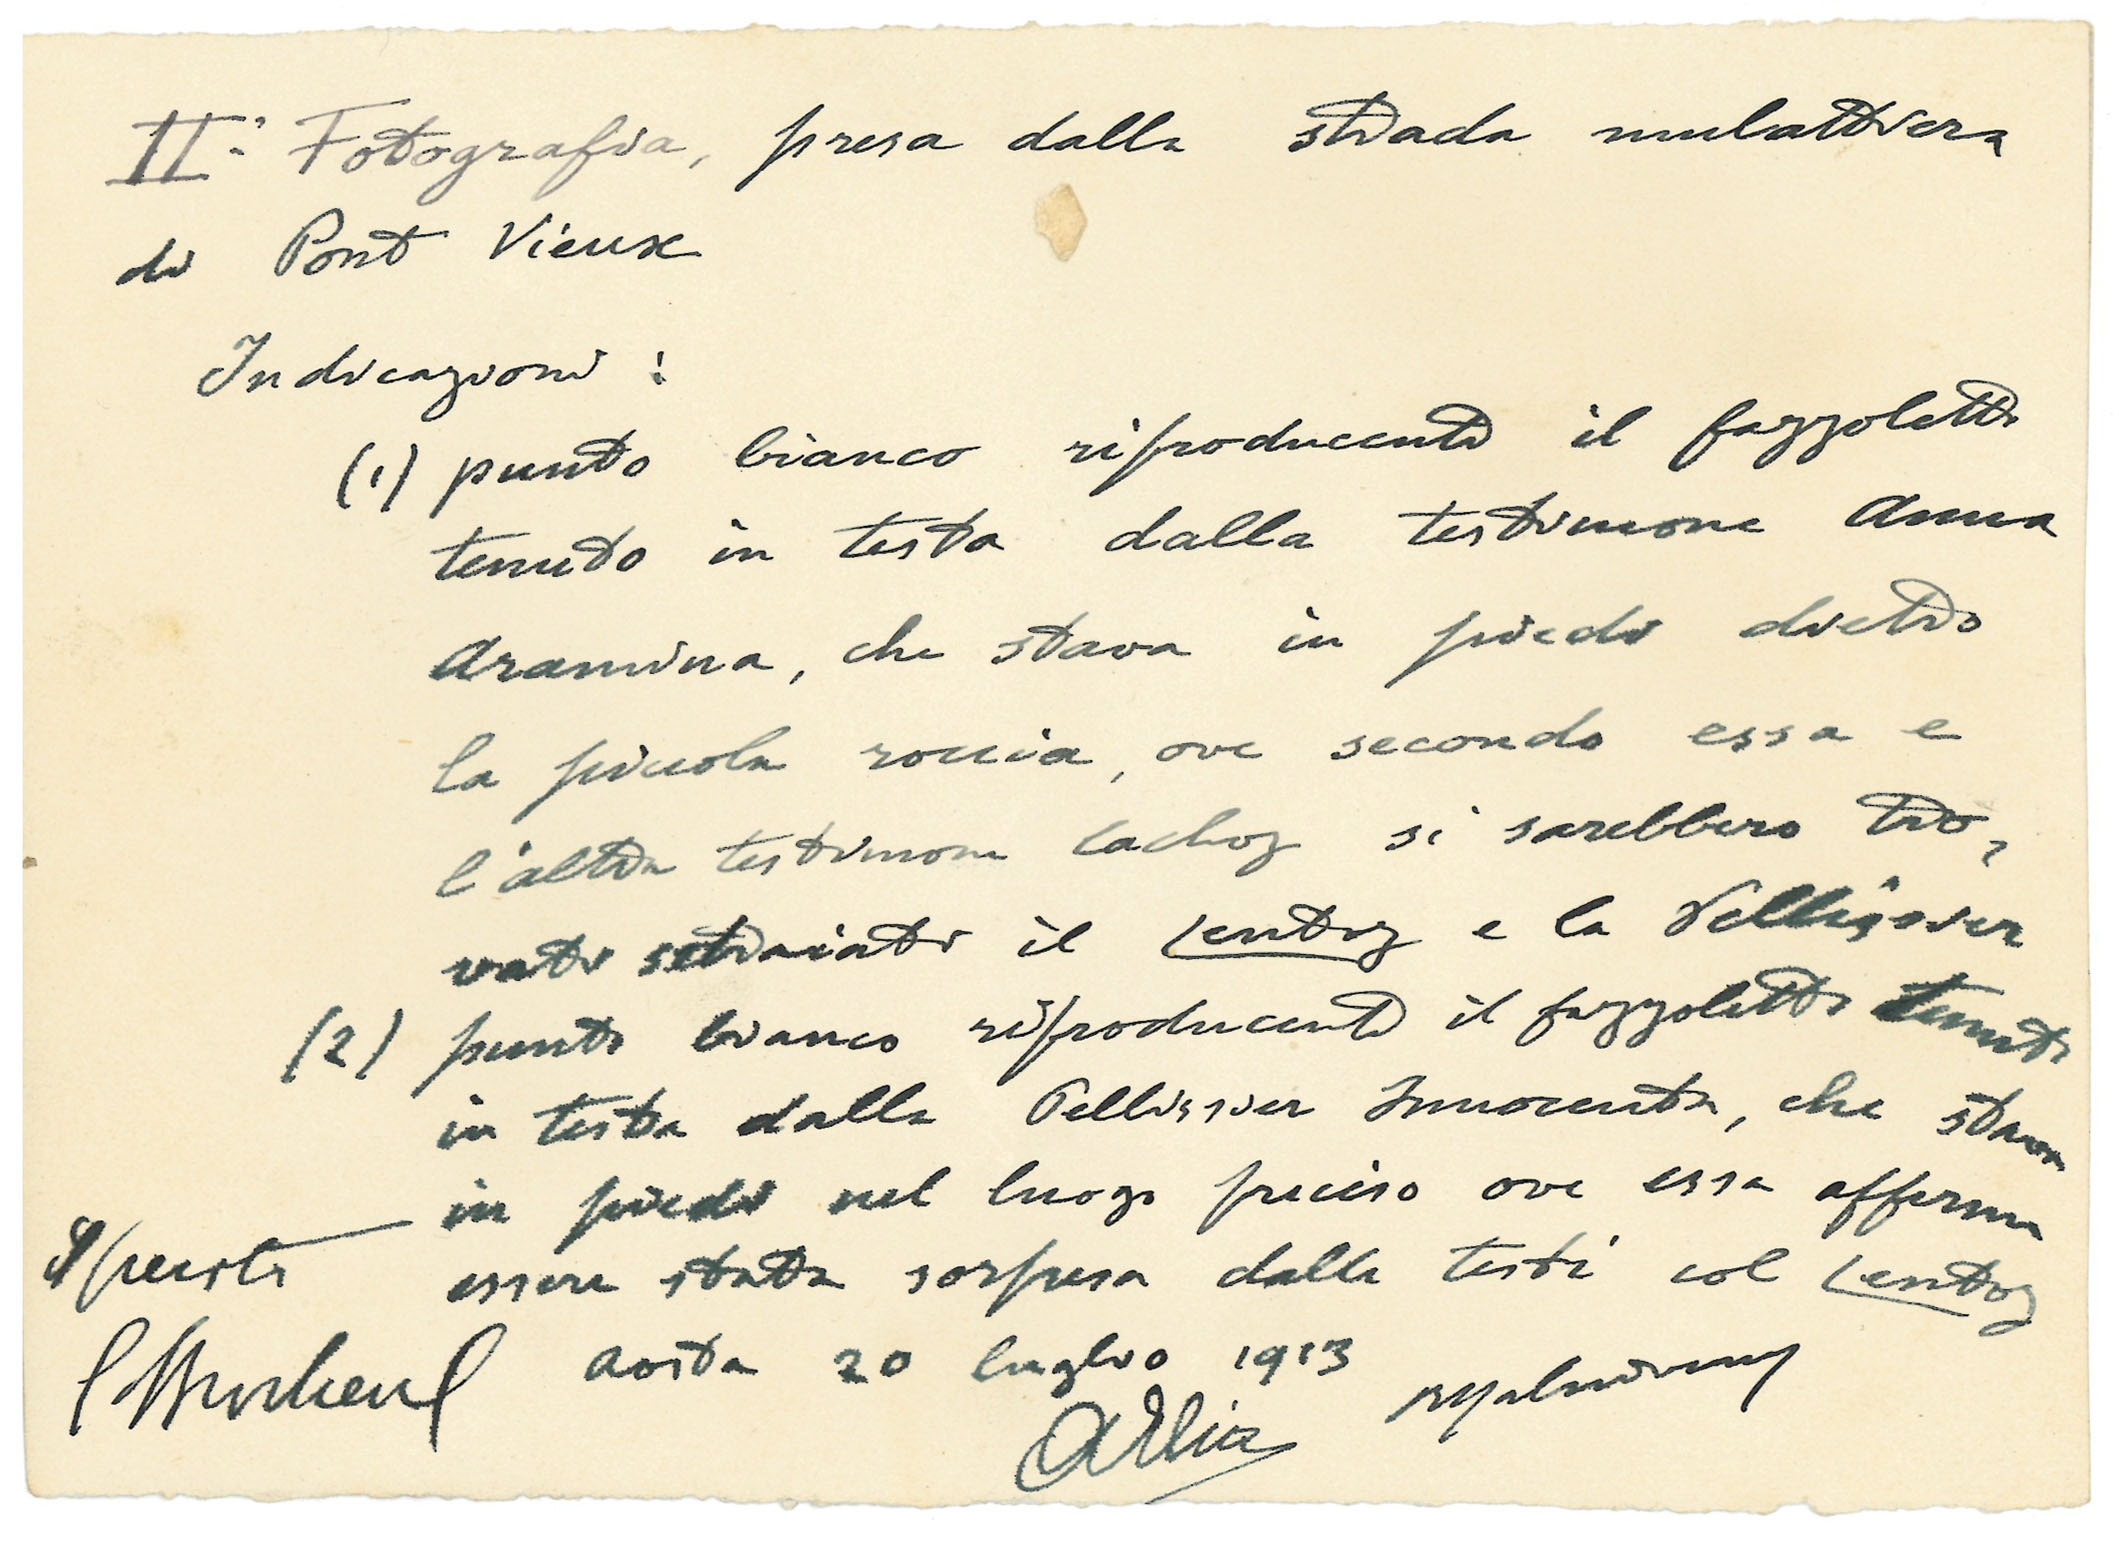 IIª Fotografia, presa dalla strada mulattiera
di Pont Vieux
Indicazioni :
(1) punto bianco riproducente il fazzoletto
tenuto in testa dalla testimone Anna
Aramina, che stava in piedi dietro
la piccola roccia, ove secondo essa e
l'altra testimone Cachoz si sarebbero tro,
vati sdraiati il Lentoz e la Pellissier
(2) punto bianco riproducente il fazzoletto tenuto
in testa dalla Pellissier Innocenta, che stava
in piedi nel luogo preciso ove essa afferma
essere stata sorpresa dalle testi col Lentoz
Aosta 20 luglio 1913